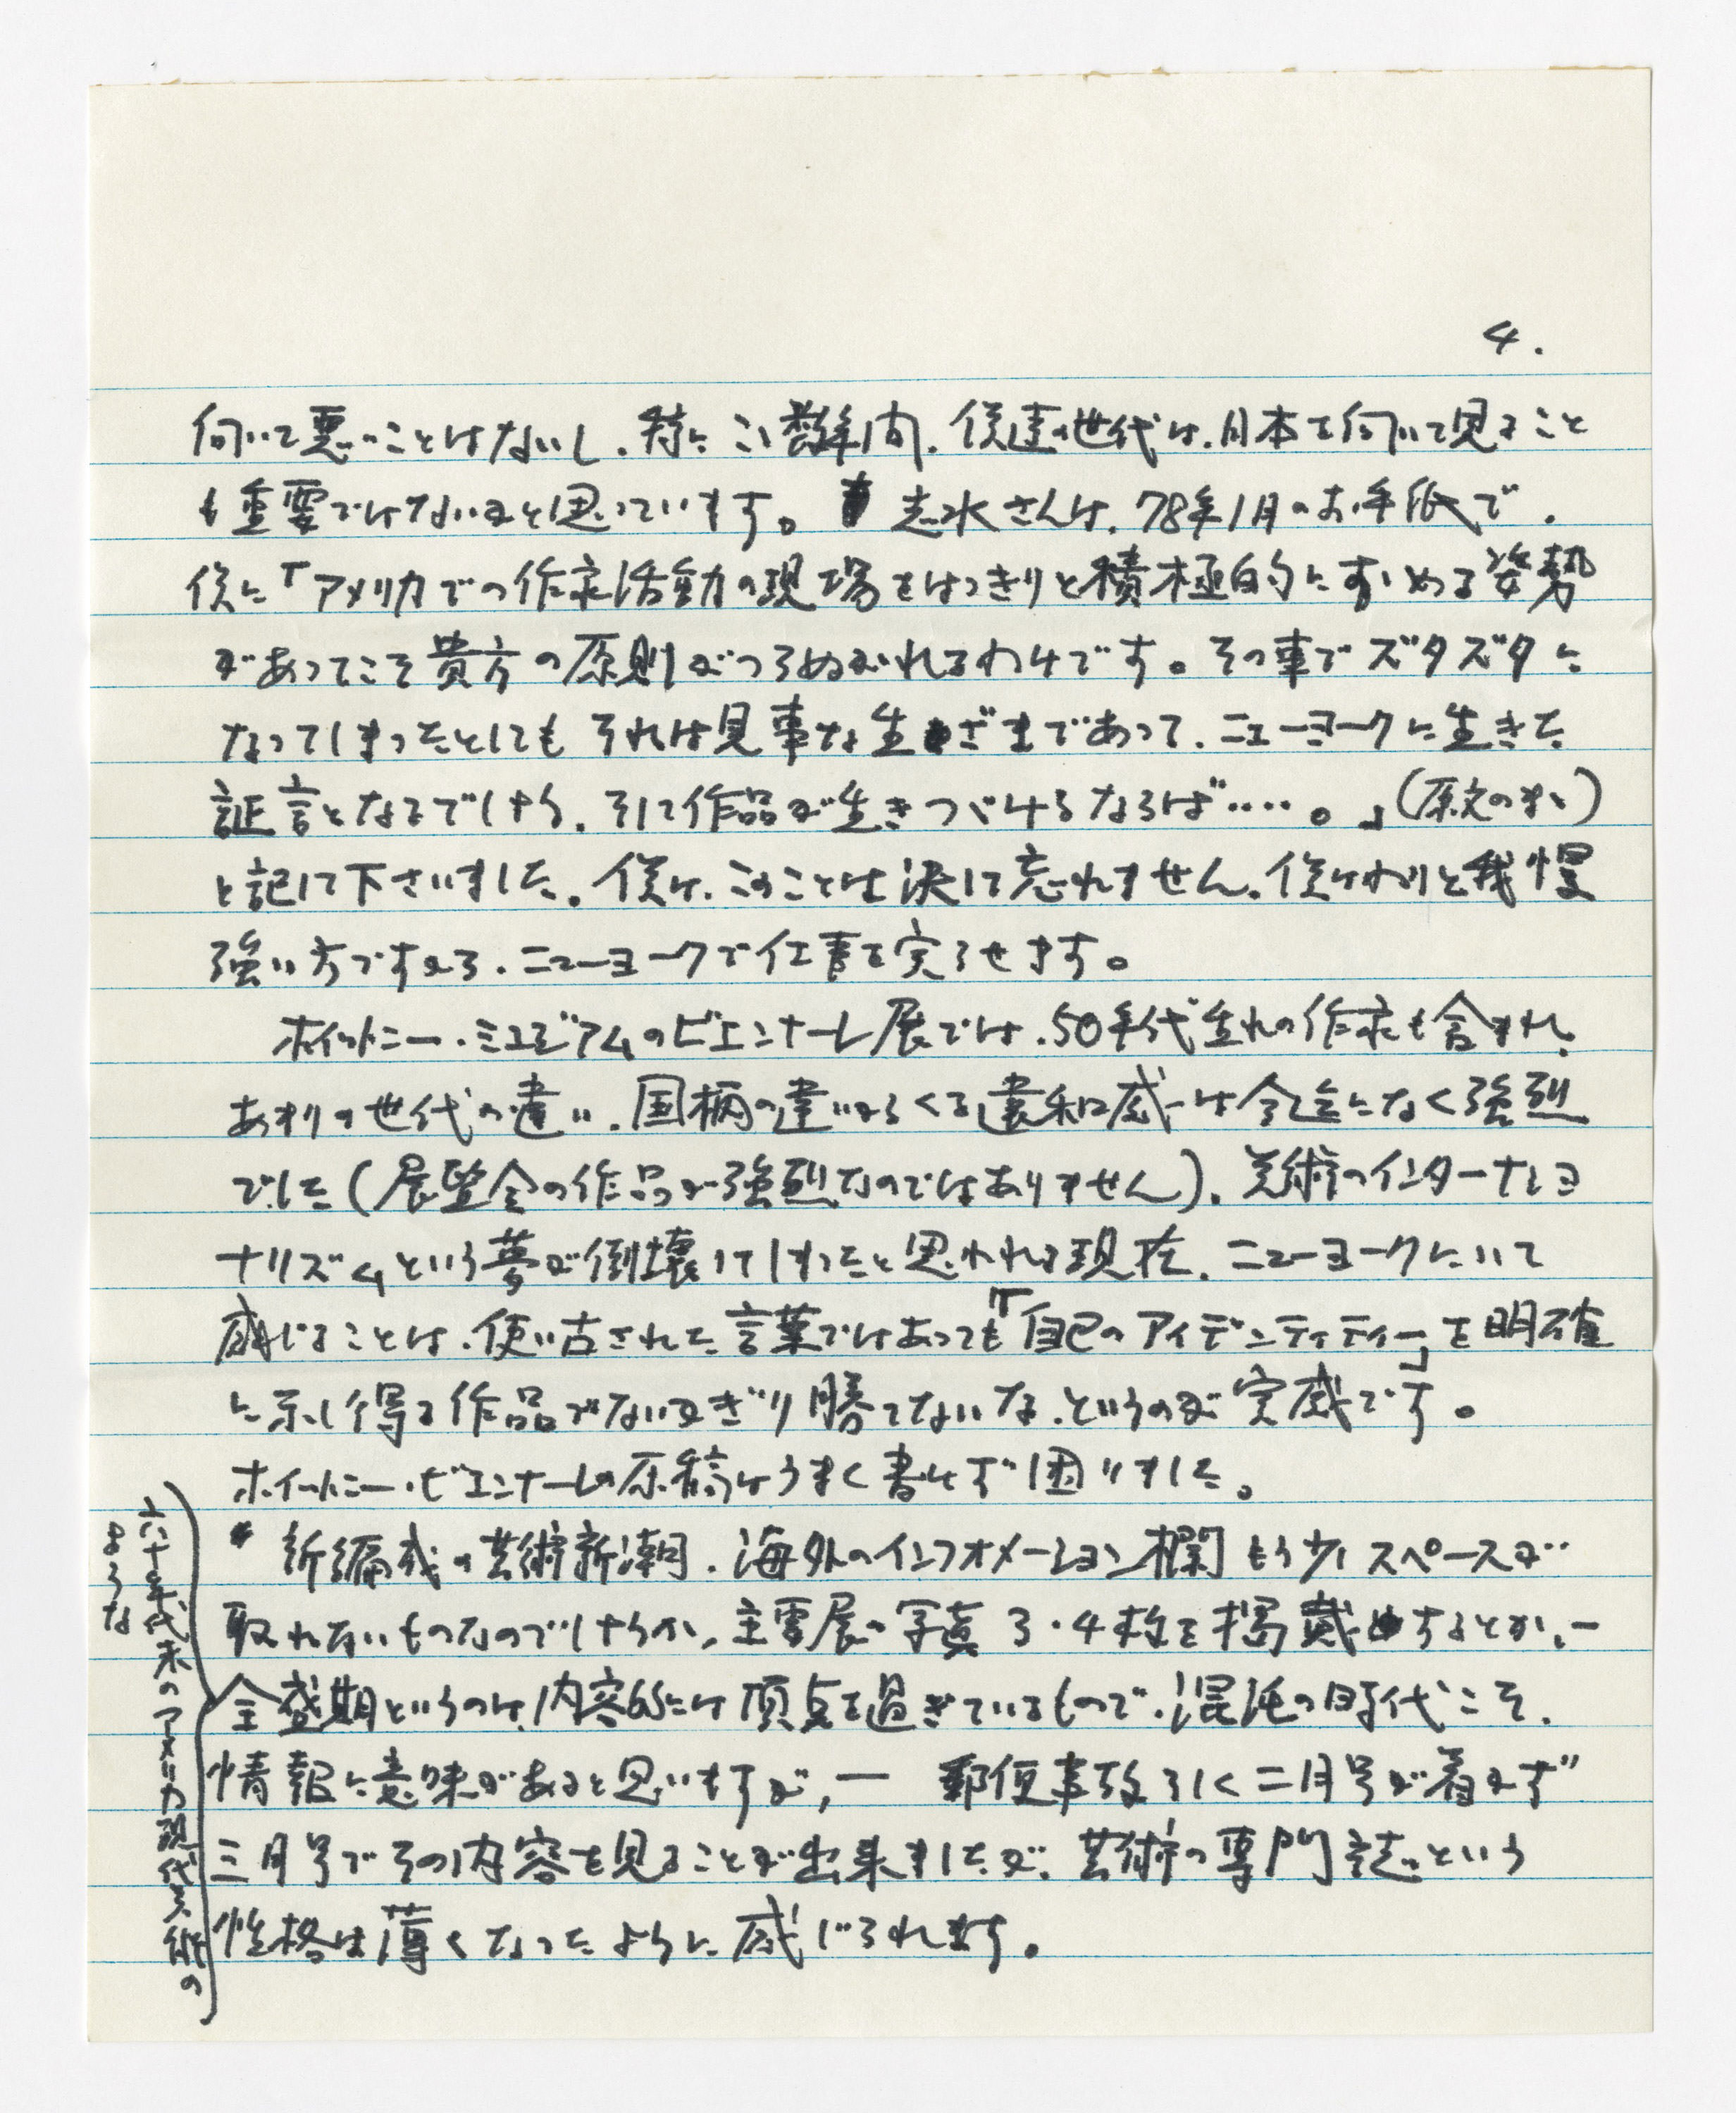 4.
向いて悪いことはないし、特にこゝ数年間、僕達の世代は、日本を向いて見ること
も重要ではないかと思っています。志水さんは、78年1月のお手紙で、
僕に「アメリカでの作家活動の現場をはっきりと積極的にすゝめる姿勢
があってこそ貴方の原則がつらぬかれるわけです。その事でズタズタに
なってしまったとしてもそれは見事な生ざまであって、ニューヨークに生きた
証言となるでしょう、そして作品が生きつづけるならば‥‥。」(原文のまゝ)
と記して下さいました。僕は、このことは決して忘れません。僕はわりと我慢
強い方ですから、ニューヨークで仕事を実らせます。
ホイットニー・ミュジアムのビエンナーレ展では、50年代生れの作家も含まれ、
あまりの世代の違い、国柄の違いからくる違和感は今迄になく強烈
でした(展覧会の作品が強烈なのではありません)。美術のインターナショ
ナリズムという夢が倒壊してしまったと思われる現在、ニューヨークにいて
感じることは、使い古された言葉ではあっても「自己のアイデンティティー」を明確
に示し得る作品でないかぎり勝てないな、というのが実感です。
ホイットニー・ビエンナーレの原稿はうまく書けず困りました。
新編成の芸術新潮、海外のインフォメーション欄もう少しスペースが
取れないものなのでしょうか、主要展の写真3・4枚を掲載するとか、ー
全盛期というのは、内容的には頂点を過ぎているもので、混沌の時代こそ、
情報に意味があると思いますが、ー 郵便事故らしく二月号が着かず
三月号でその内容を見ることが出来ましたが、芸術の専門誌という
性格は薄くなったように感じられます。
六十年代末のアメリカ現代美術の
ような